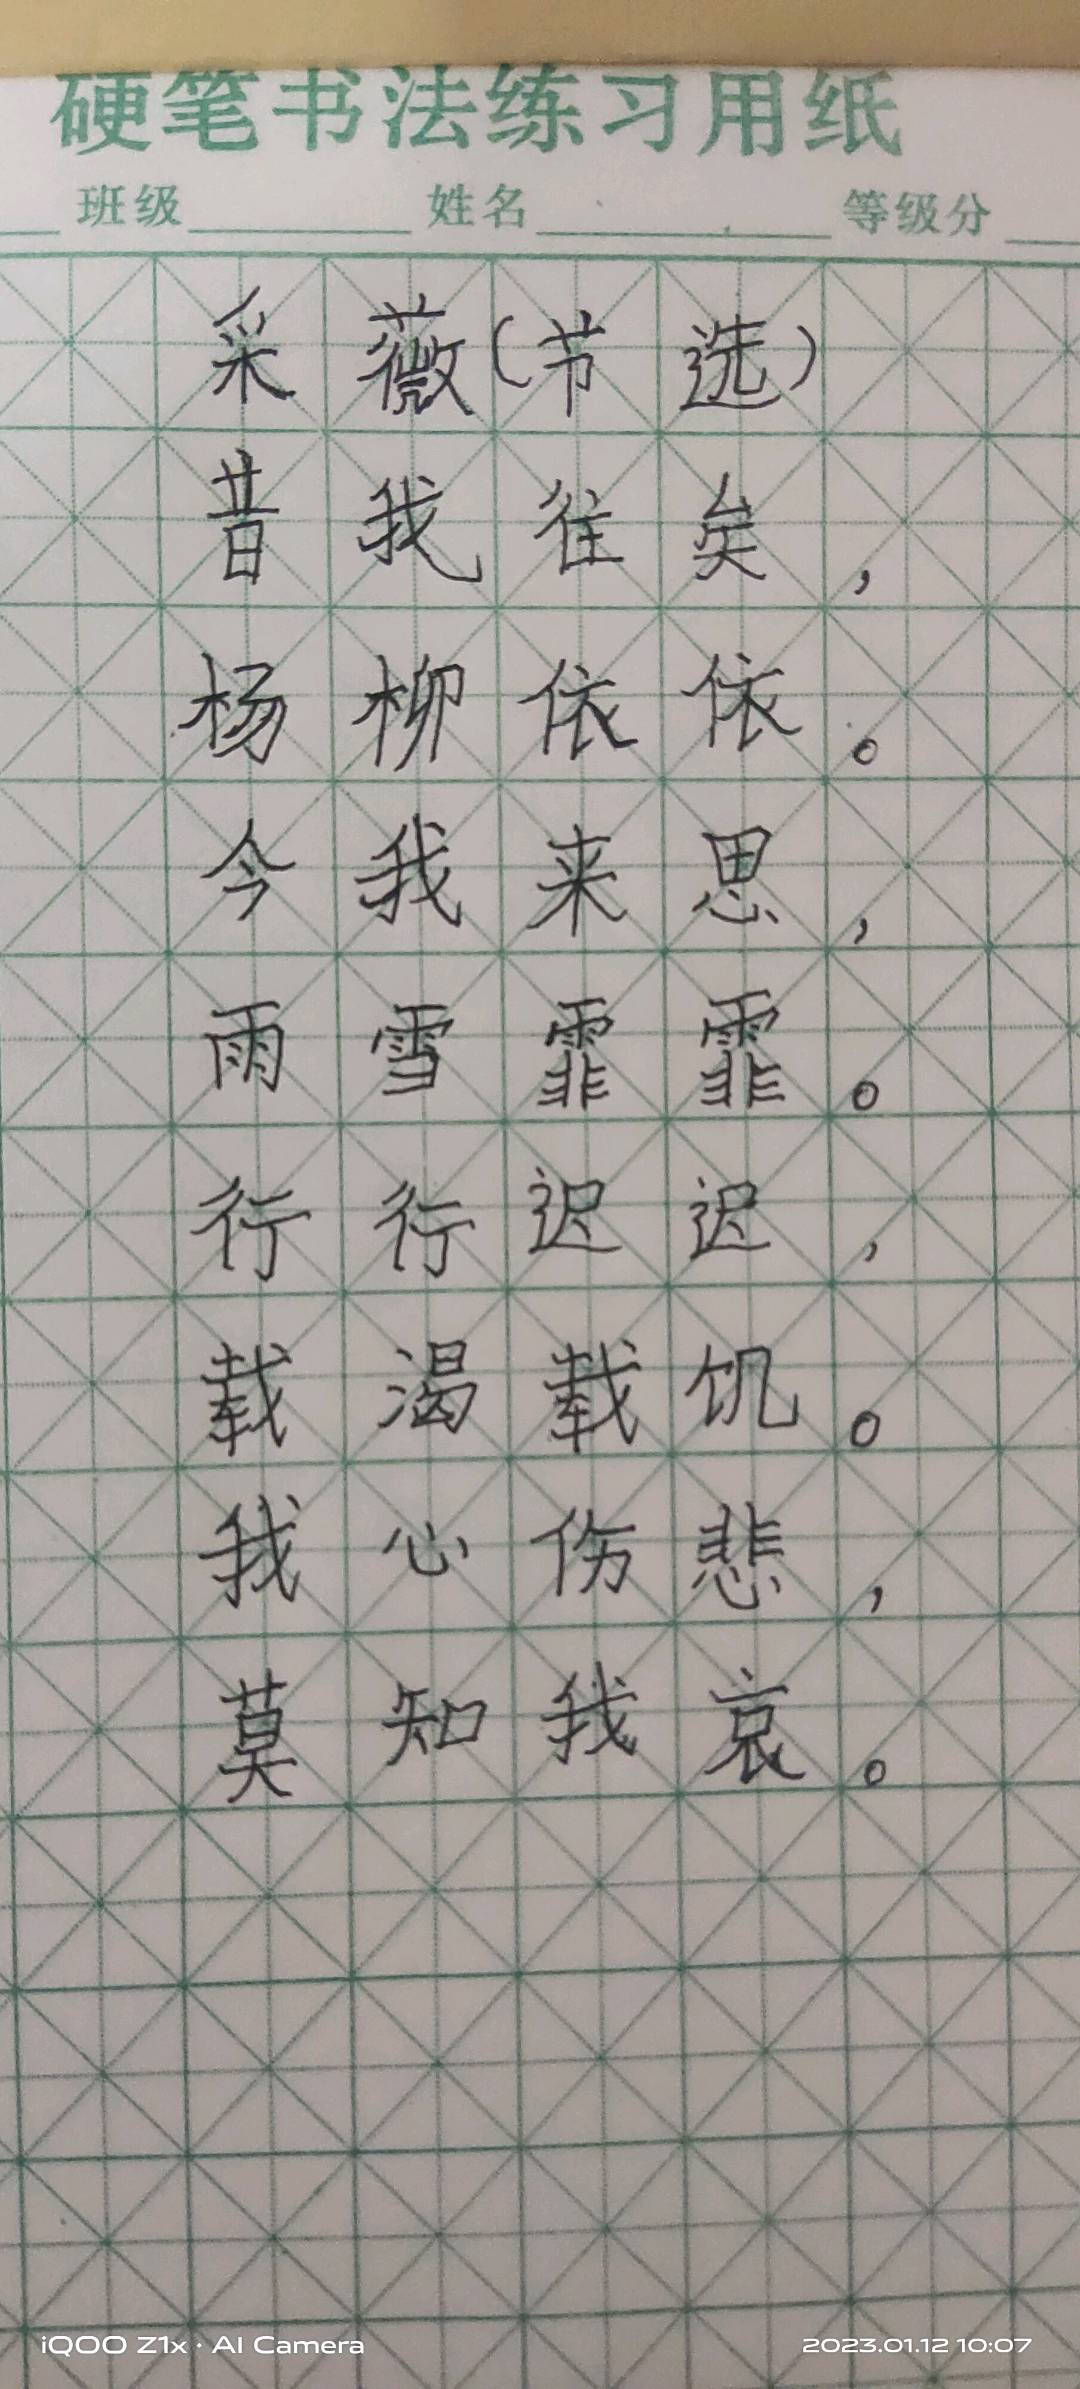 硬笔书法练习用纸
班级 姓名 等级分
采薇(节选)
昔我往矣,
杨柳依依。
今我来思,
雨雪霏霏。
行行迟迟,
载渴载饥。
我心伤悲,
莫知我哀。
iQOO Z1x · AI Camera
2023.01.12 10:07